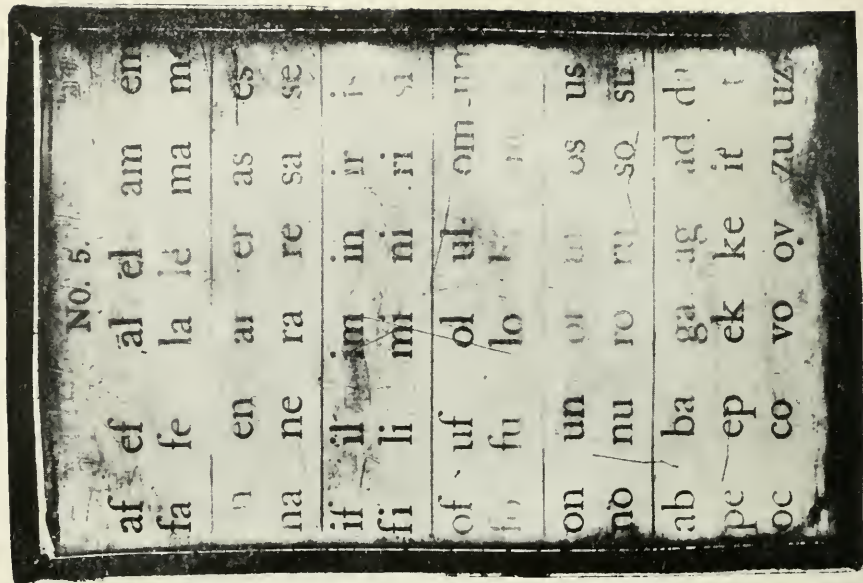 NO. 5.
af ef al el am em
fa fe la le ma me
en ar er as es
na ne ra re sa se
if il im in ir is
fi li mi ni ri si
of uf ol ul om um
fo fu lo
on un or ur os us
no nu ro ru so su
ab ba ga ag ad da
pe ep ek ke it
oc co vo ov zu uz